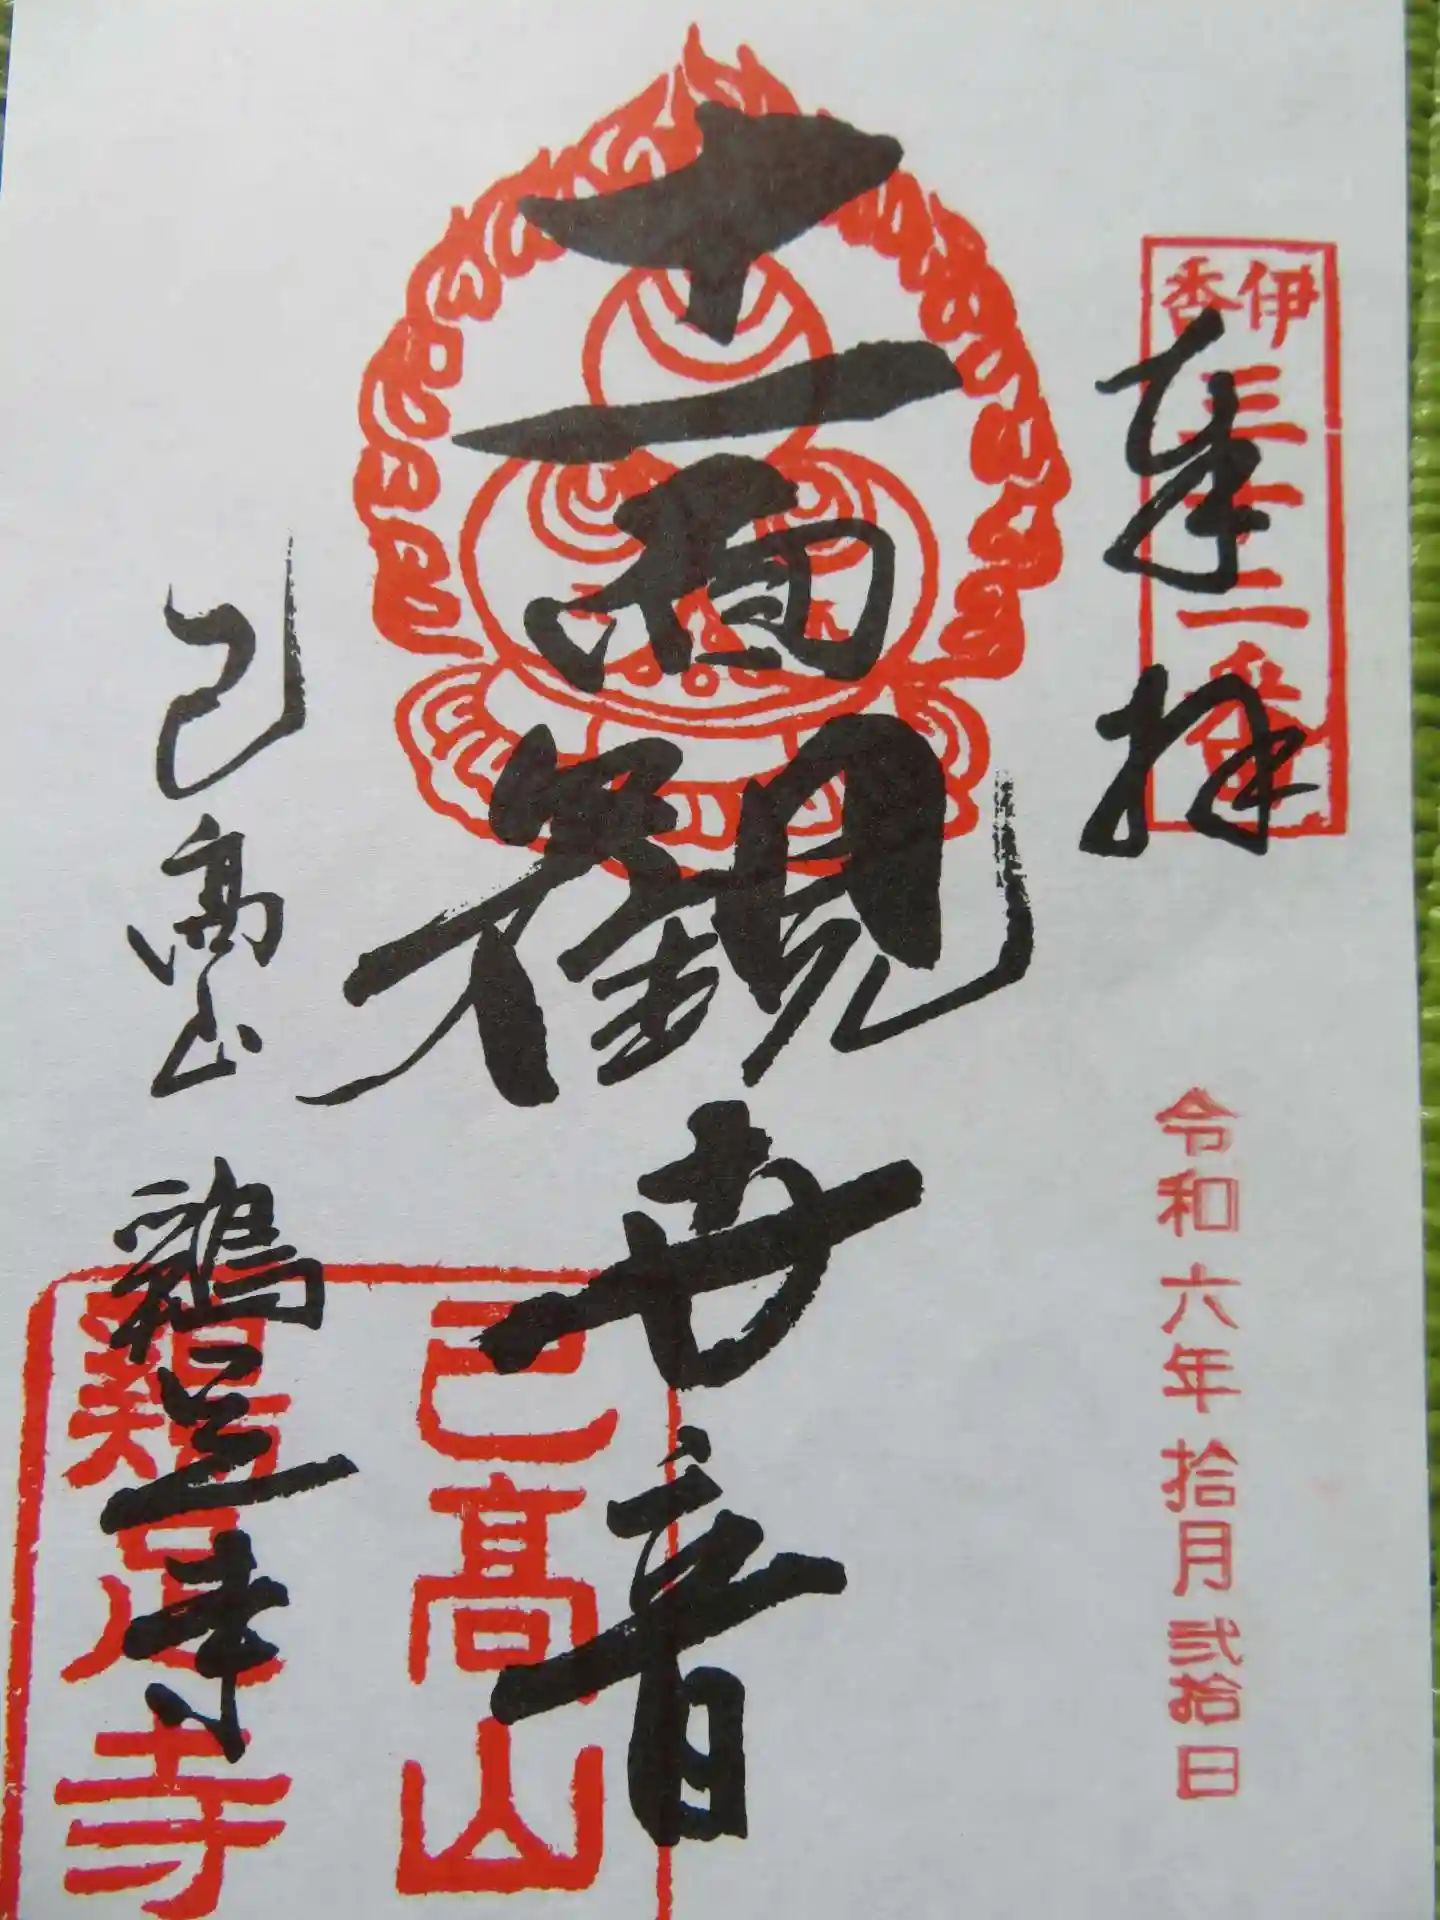 伊香三十二番
奉拝
令和六年拾月弐拾日
十一面観世音
己高山
鶏足寺
己高山
鶏足寺